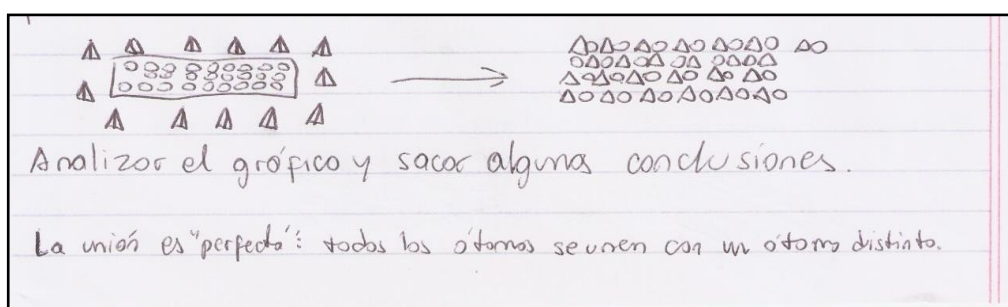 Analizar el gráfico y sacar algunas conclusiones.
La unión es "perfecta": todos los átomos se unen con un átomo distinto.